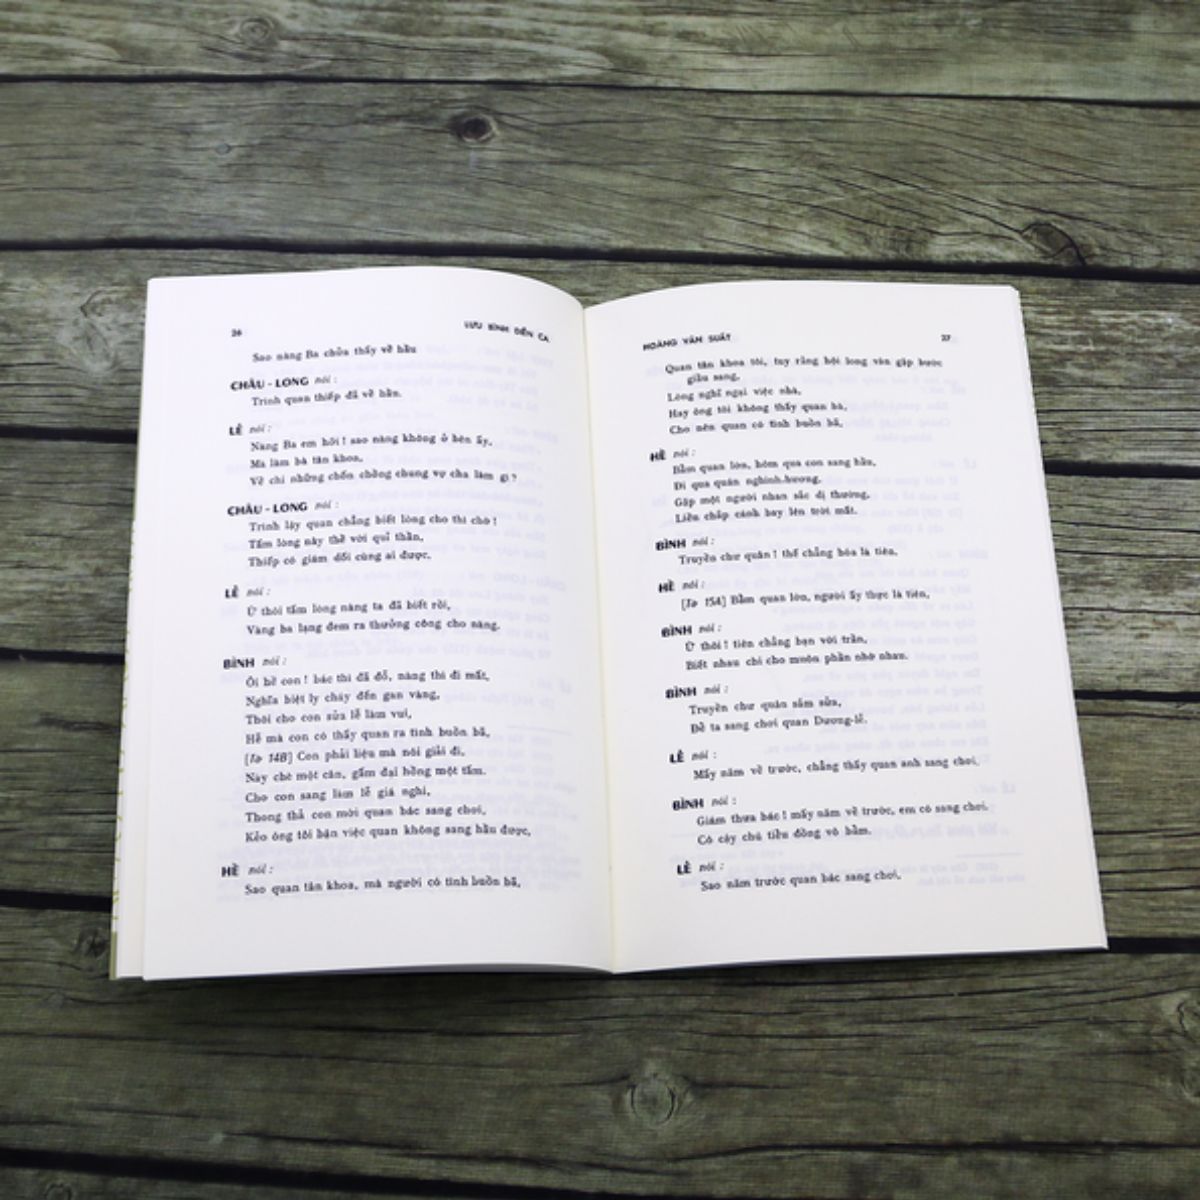 26
LƯU BÌNH DIỄN CA
Sao nàng Ba chửa thấy về hầu
CHÂU - LONG nói :
Trình quan thiếp đã về hầu.
LỄ nói :
Nàng Ba em hỡi ! sao nàng không ở bên ấy,
Mà làm bà tân khoa,
Về chi những chốn chồng chung vợ chạ làm gì ?
CHÂU - LONG nói :
Trình lạy quan chẳng biết lòng cho thì chớ !
Tấm lòng này thề với quỉ thần,
Thiếp có giám dối cùng ai được.
LỄ nói :
Ừ thôi tấm lòng nàng ta đã biết rồi,
Vàng ba lạng đem ra thưởng công cho nàng.
BÌNH nói :
Ôi hề con ! bác thì đã đỗ, nàng thì đi mất,
Nghĩa biệt ly cháy đến gan vàng,
Thôi cho con sửa lễ làm vui,
Hễ mà con có thấy quan ra tình buồn bã,
[Tờ 14B] Con phải liệu mà nói giải đi,
Này chè một cân, gấm đại hồng một tấm.
Cho con sang làm lễ giá nghi,
Thong thả con mời quan bác sang chơi,
Kẻo ông tôi bận việc quan không sang hầu được,
HỀ nói :
Sao quan tân khoa, mà người có tình buồn bã,
HOÀNG VĂN SUẤT
27
Quan tân khoa tôi, tuy rằng hội long vân gặp bước
giầu sang,
Lòng nghĩ ngại việc nhà,
Hay ông tôi không thấy quan bà,
Cho nên quan có tình buồn bã,
HỀ nói :
Bẩm quan lớn, hôm qua con sang hầu,
Đi qua quán nghinh-hương,
Gặp một người nhan sắc dị thường,
Liền chắp cánh bay lên trời mất.
BÌNH nói :
Truyền chư quân ! thế chẳng hóa là tiên,
HỀ nói :
[Tờ 15A] Bẩm quan lớn, người ấy thực là tiên,
BÌNH nói :
Ừ thôi ! tiên chẳng bạn với trần,
Biết nhau chi cho muôn phần nhớ nhau.
BÌNH nói :
Truyền chư quân sắm sửa,
Để ta sang chơi quan Dương-lễ.
LỄ nói :
Mấy năm về trước, chẳng thấy quan anh sang chơi,
BÌNH nói :
Giám thưa bác ! mấy năm về trước, em có sang chơi.
Có cậy chú tiểu đồng vô bẩm.
LỄ nói :
Sao năm trước quan bác sang chơi,